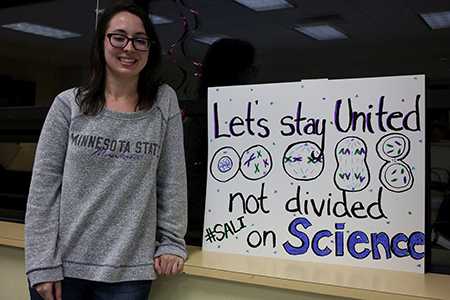 MINNESOTA STATE
Let's stay United
not divided
#SALI on Science